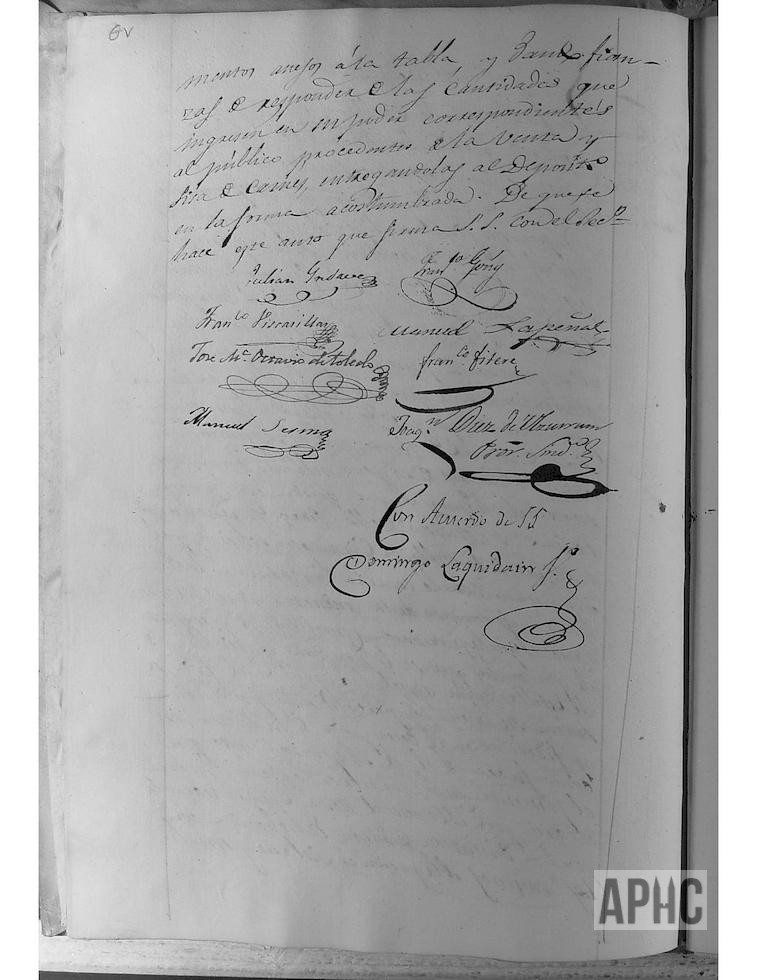 6v
mentos anejos á la tabla, y dando fian-
zas de responder de las cantidades que
ingresen en su poder correspondientes
al público, procedentes de la Venta y
sisa de carnes, entregandolas al Deposito
en la forma acostumbrada. De que se
hace este auto que firma S.S. con el Secº
Julian
Franco Goñy
Franco Vicarillar
Manuel Lapeña
Jose Mª Octavio de Toledo
franco fitero
Manuel Sesma
Joaqn Diez de Ulzurrun
Pror. Sindº
Con Acuerdo de SS
Domingo Laquidain Sº
APHC